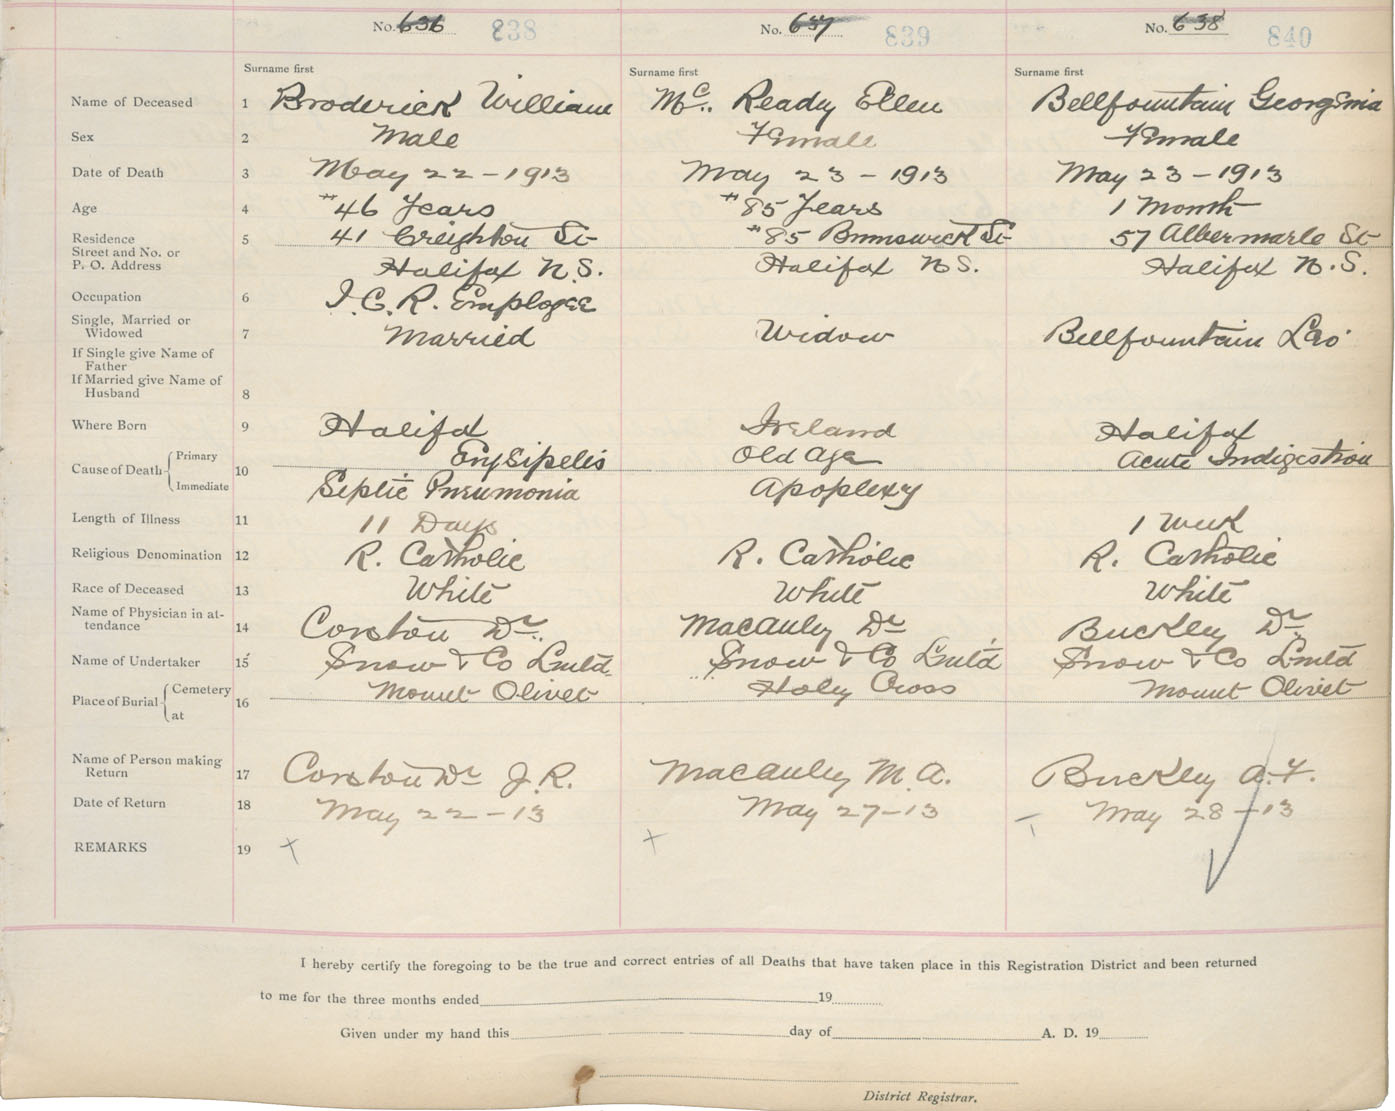 No. 636 838 No. 637 839 No. 638 840
Surname first Surname first Surname first
Name of Deceased 1 Broderick William Mc.. Ready Ellen Bellfountain Georgenia
Sex 2 Male Female Female
Date of Death 3 May 22 - 1913 May 23 - 1913 May 23 - 1913
Age 4 "46 Years "85 Years 1 Month
Residence 5 41 Creighton St "85 Brunswick St 57 Albermarle St
Street and No. or
P. O. Address Halifax N.S. Halifax N S. Halifax N.S.
Occupation 6 I.C.R. Employee
Single, Married or
Widowed 7 Married Widow Bellfountain Leo
If Single give Name of
Father
If Married give Name of
Husband 8
Where Born 9 Halifax Ireland Halifax
Cause of Death Primary 10 Erysipelis Old Age Acute Indigestion
Immediate Septic Pneumonia Apoplexy
Length of Illness 11 11 Days 1 Week
Religious Denomination 12 R. Catholic R. Catholic R. Catholic
Race of Deceased 13 White White White
Name of Physician in at-
tendance 14 Corston Dr. Macauley Dr Buckley Dr
Name of Undertaker 15 Snow & Co Lmtd. Snow & Co Lmtd Snow & Co Lmtd
Place of Burial Cemetery 16 Mount Olivet Holy Cross Mount Olivet
at
Name of Person making
Return 17 Corston Dr J.R. Macauley M.A. Buckley A.F.
Date of Return 18 May 22 - 13 May 27-13 May 28-13
REMARKS 19
I hereby certify the foregoing to be the true and correct entries of all Deaths that have taken place in this Registration District and been returned
to me for the three months ended 19
Given under my hand this day of A. D. 19
District Registrar.